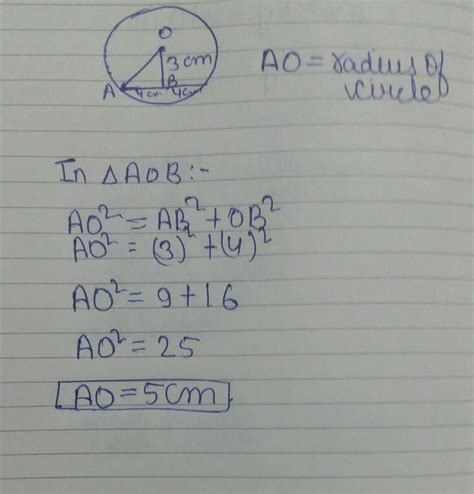 O
3cm
A B
4cm 4cm
AO = radius of
circle
In △AOB:-
AO² = AB² + OB²
AO² = (3)² + (4)²
AO² = 9 + 16
AO² = 25
AO = 5cm